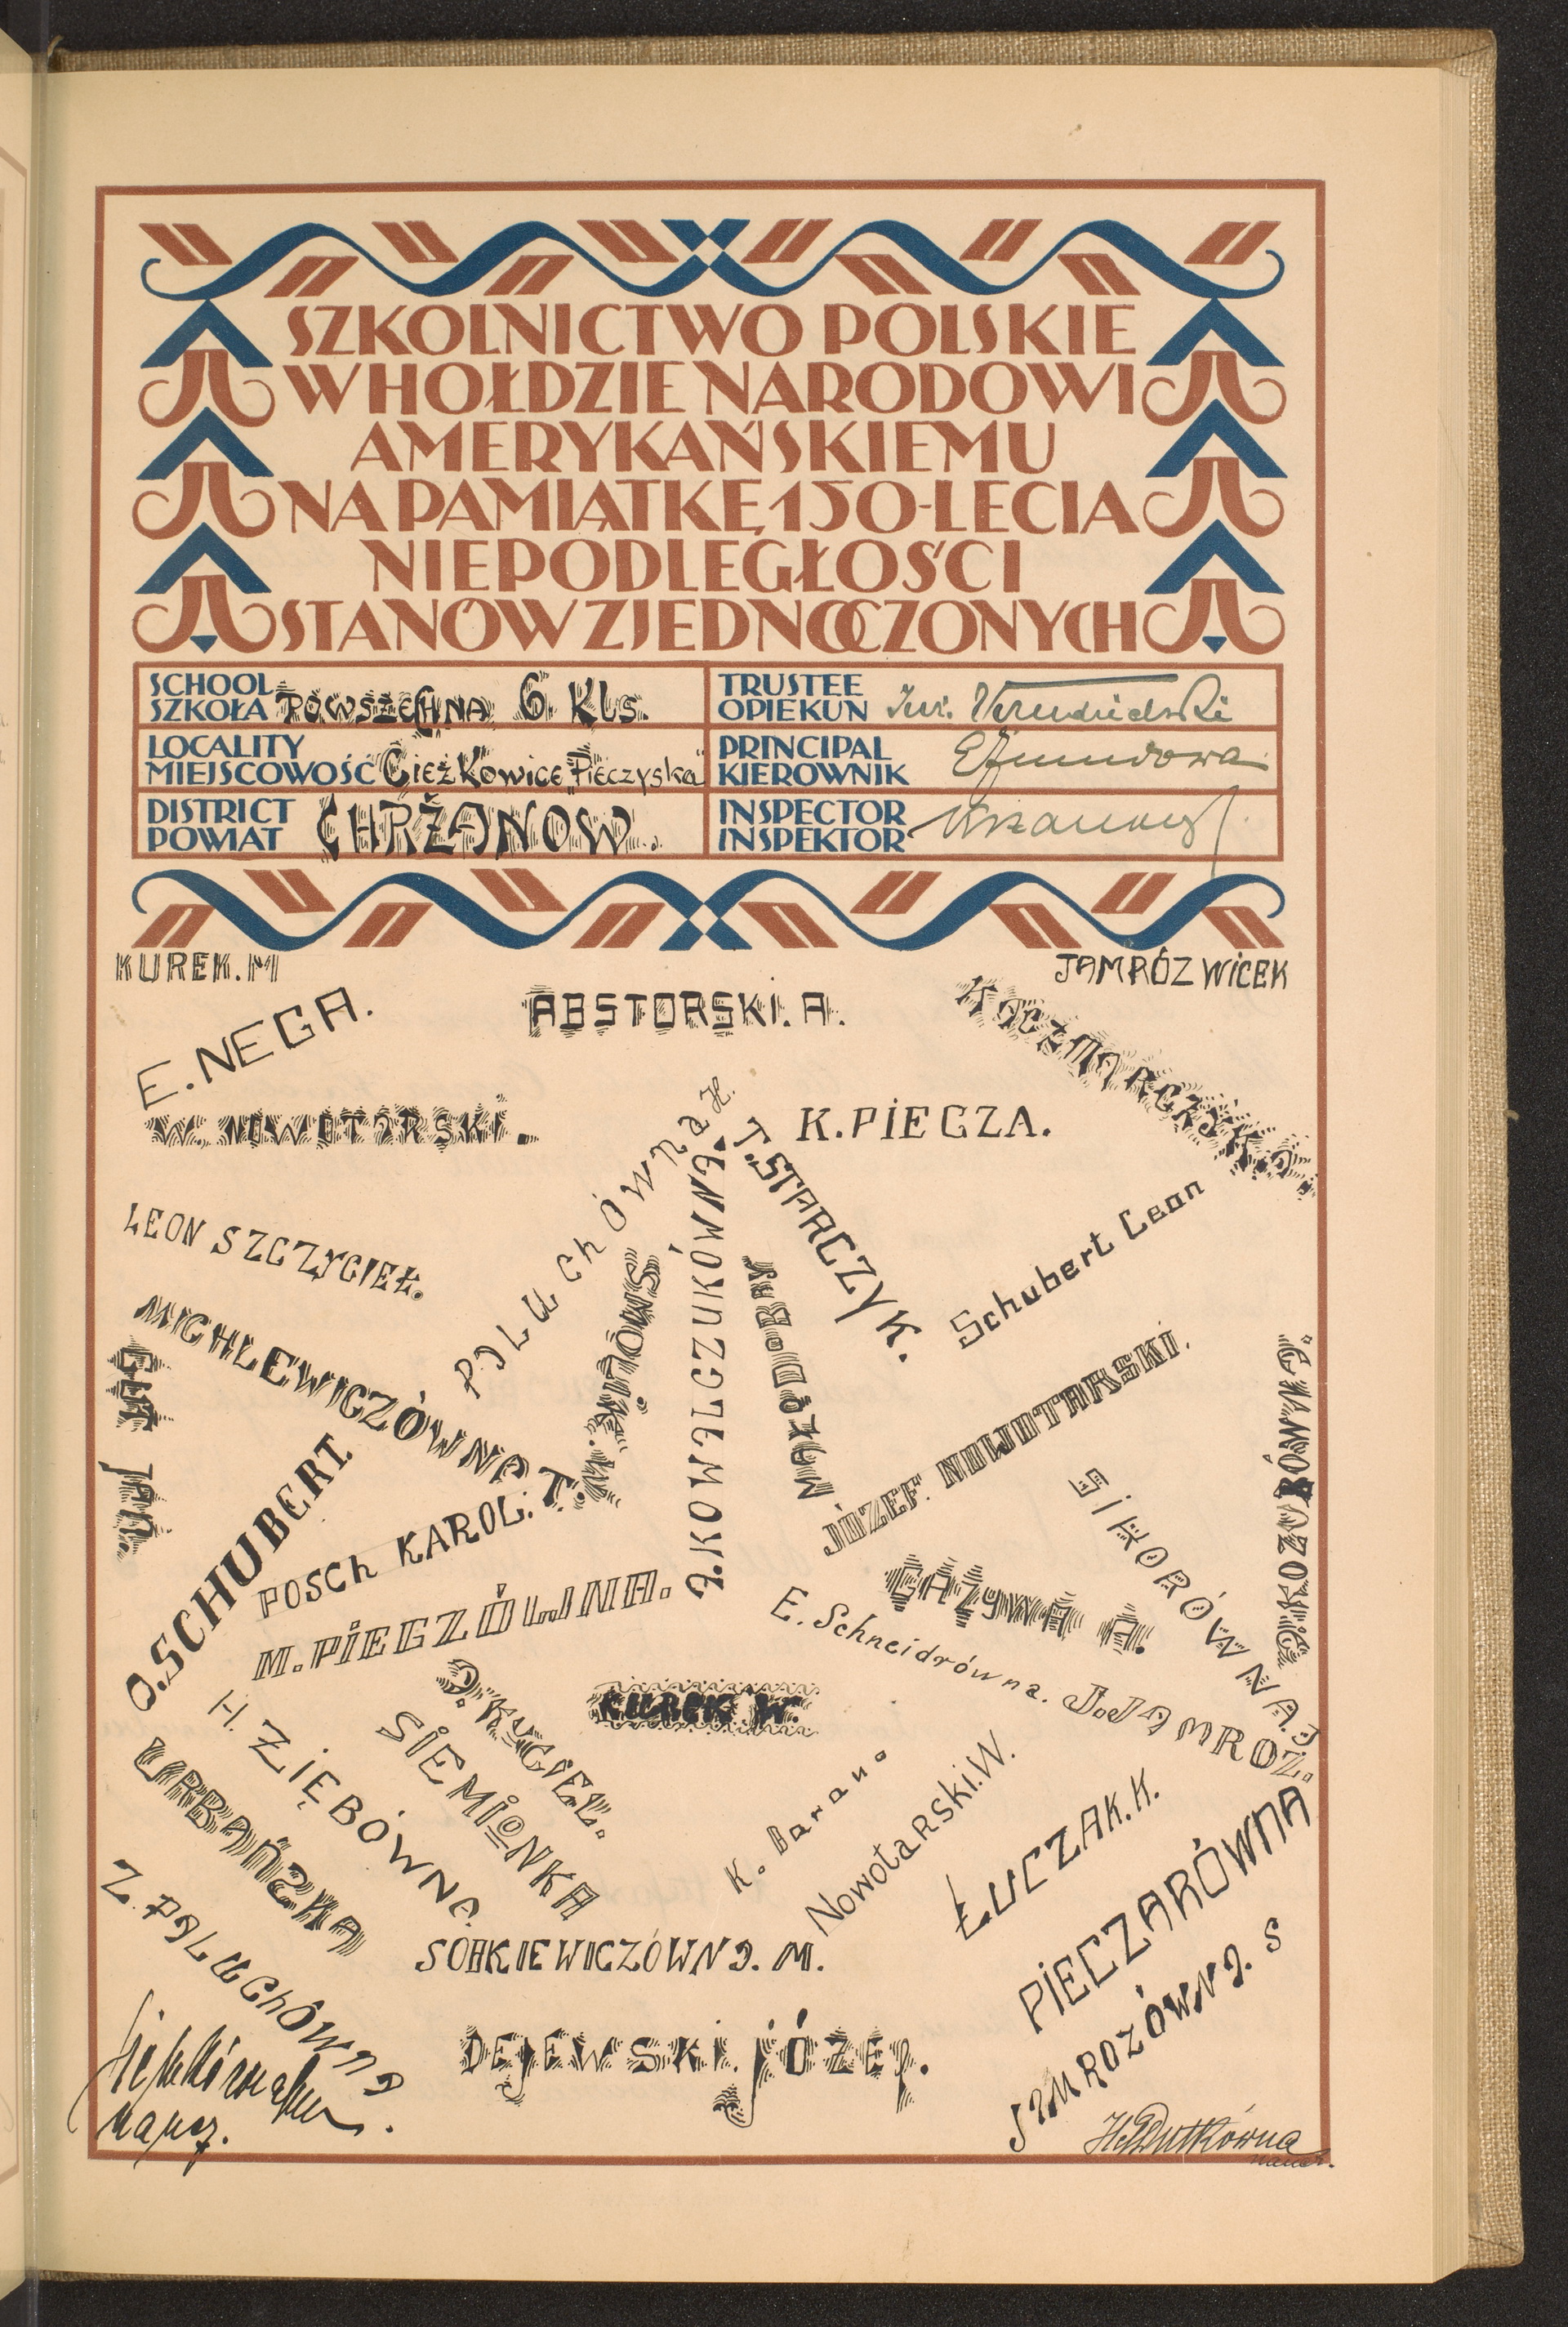 SZKOLNICTWO POLSKIE
W HOŁDZIE NARODOWI
AMERYKAŃSKIEMU
NA PAMIĄTKĘ 150-LECIA
NIEPODLEGŁOŚCI
STANÓW ZJEDNOCZONYCH
SCHOOL
SZKOŁA POWSZECHNA 6 Kls.
TRUSTEE
OPIEKUN
LOCALITY
MIEJSCOWOŚĆ CieżKowice "Pieczyska"
PRINCIPAL
KIEROWNIK
DISTRICT
POWIAT CHRŻANOW.
INSPECTOR
INSPEKTOR
KUREK. M
JAMRÓZ WiCEK
E. NEGA.
ABSTORSKi. A.
KACZMARCZYK.
W. NOWOTARSKi.
K. PiECZA.
PALUChÓWNA H.
T. STARCZYK.
LEON SZCZYGIEŁ.
Schubert Leon
A. KOWALCZUKÓWNA.
SMOLiK. W.
MAŁODOBRY
MiCHLEWICZÓWNA T.
GUT JAN.
JÓZEF. NOWOTARSKI.
KOZUBÓWNA
SiKORÓWNA J
O. SCHUBERT.
POSCh KAROL.
M. PiECZÓWNA.
GAŻyWA A.
E. Schneidrówna.
J. JAMROZ.
KUREK W.
H. ZIĘBÓWNA.
SiEMiONKA
URBAŃSKA
K. Barano
Nowotarski. W.
ŁUCZAK. K.
PiECZARÓWNA
Z. PALUChÓWNA.
SOBKIEWICZÓWNA. M.
JAMROZÓWNA. S
DEJEWSKi. JÓZEF.
naucz.
H. Dutkówna
naucz.